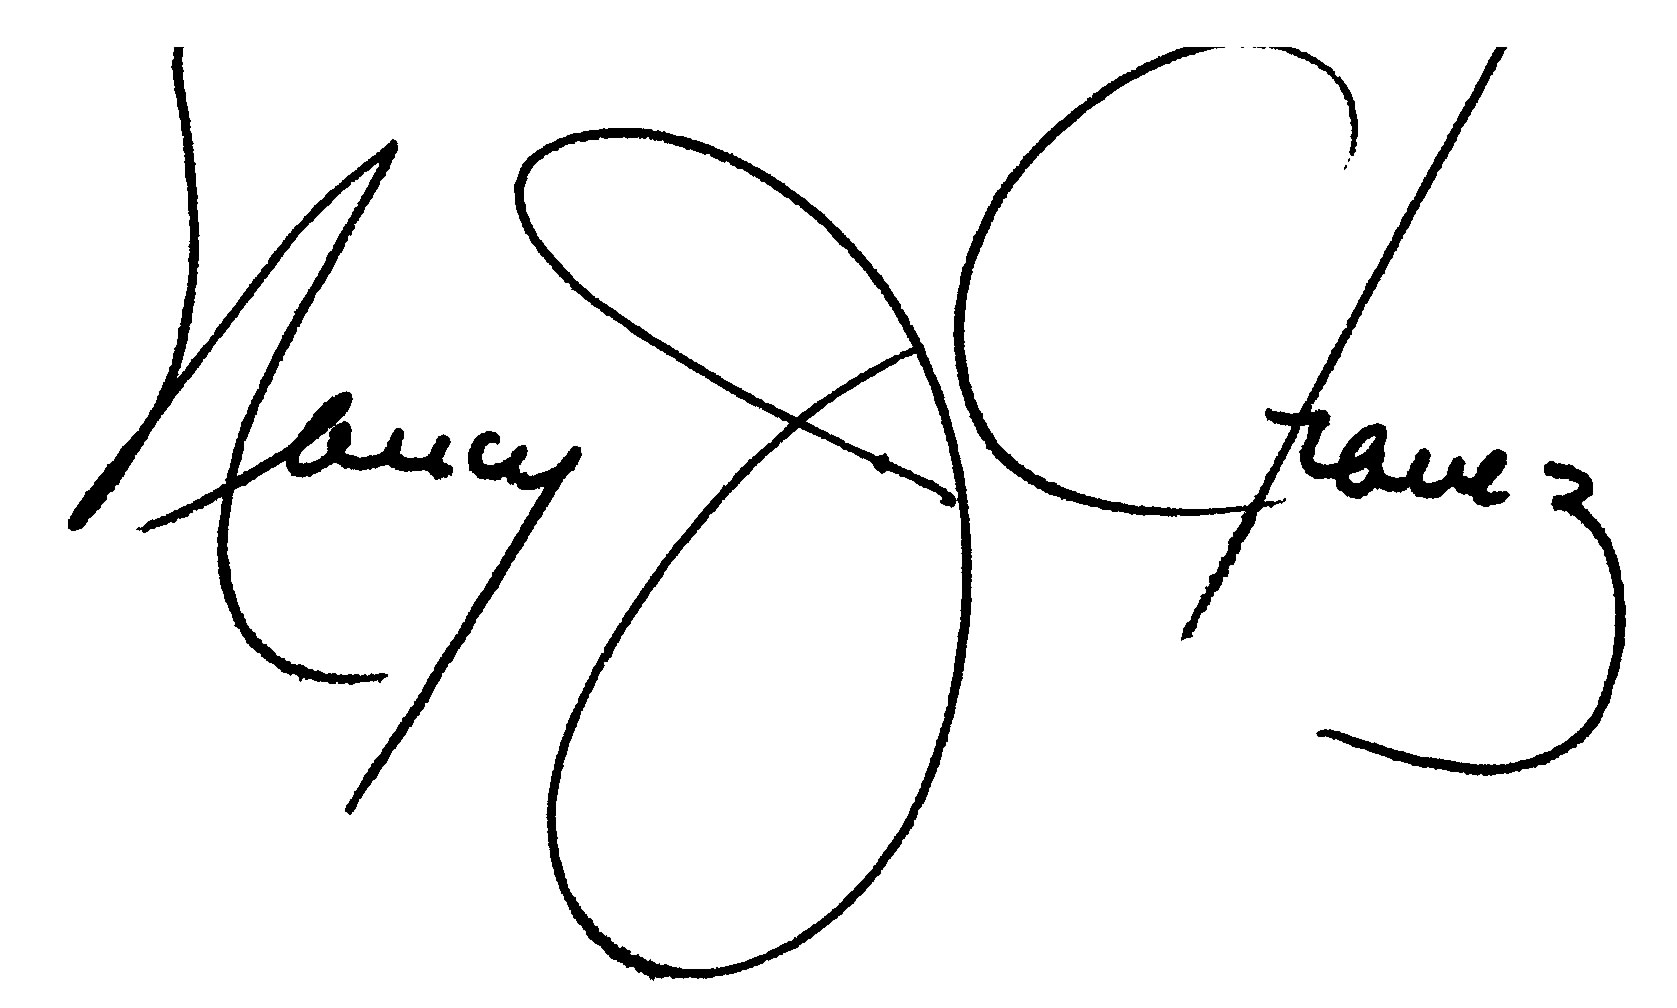 Nancy J Chavez